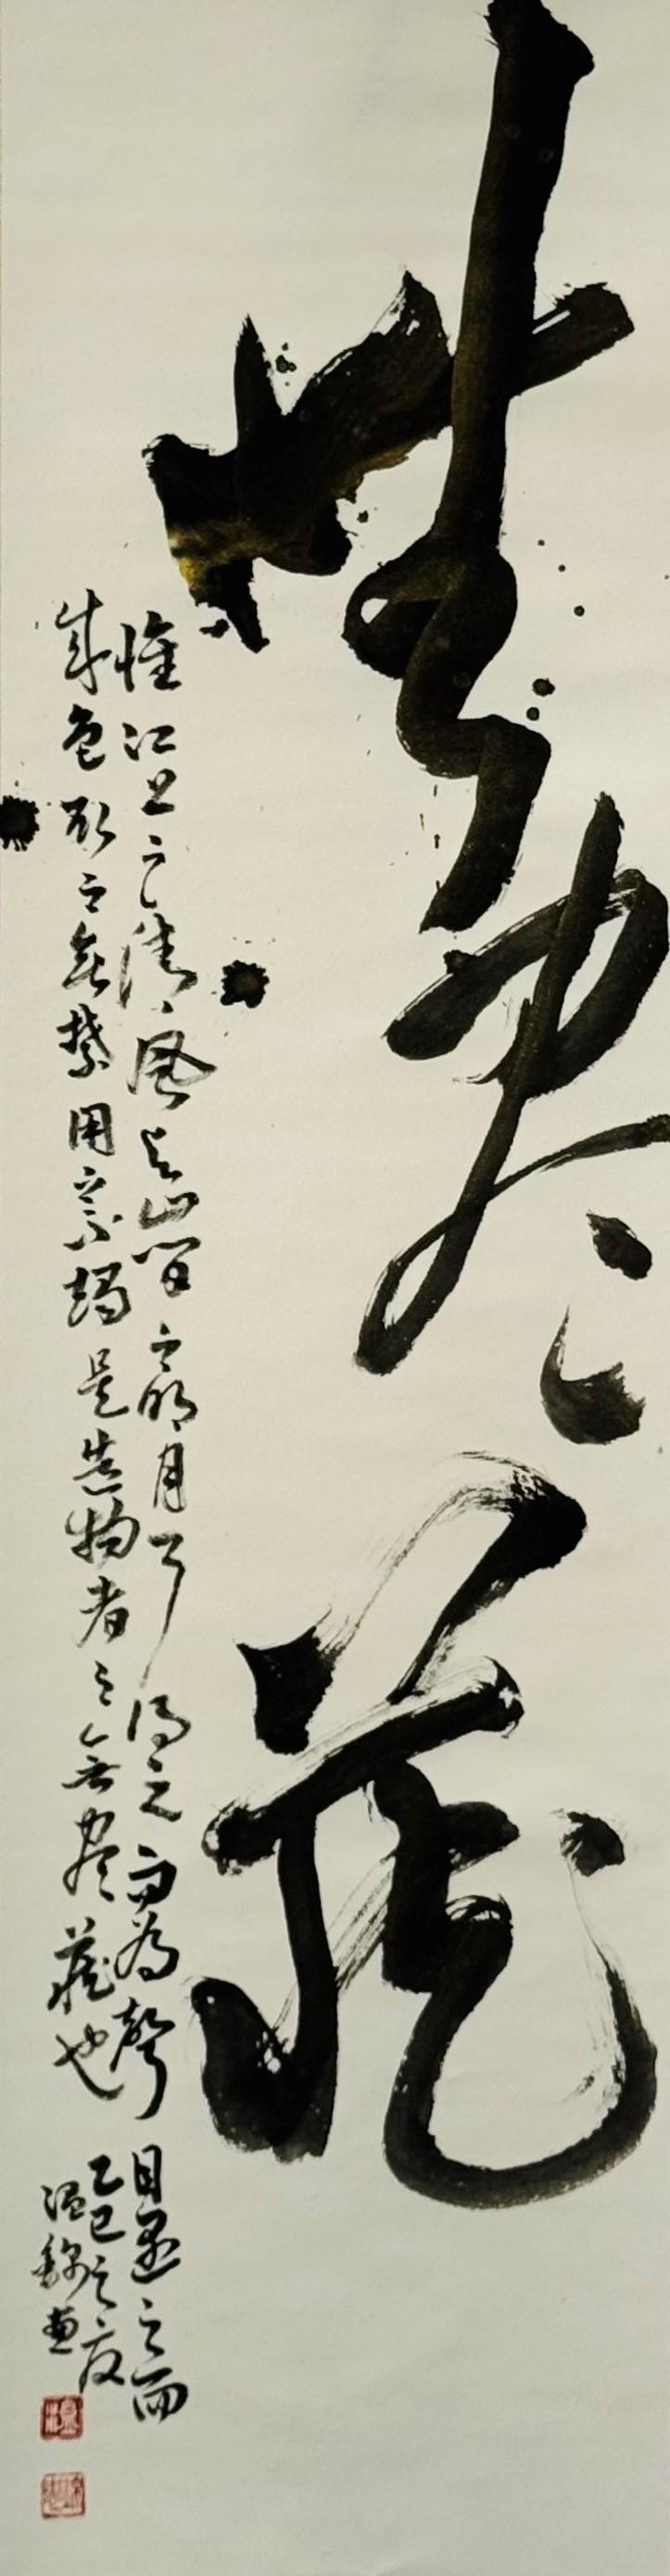 無盡藏
惟江上之清風与山間之明月耳得之而為聲目遇之而
成色取之無禁用之不竭是造物者之無盡藏也 乙巳之夏
温